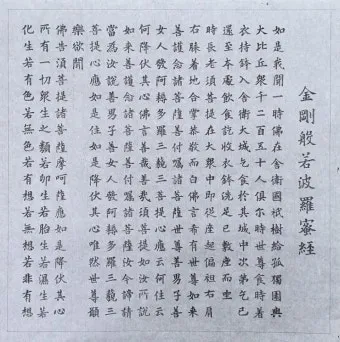 金剛般若波羅蜜經
如是我聞一時佛在舍衛國祇樹給孤獨園與
大比丘衆千二百五十人俱尔時世尊食時着
衣持鉢入舍衛大城乞食於其城中次第乞已
還至本處飯食訖收衣鉢洗足已敷座而坐
時長老須菩提在大衆中即從座起偏袒右肩
右膝着地合掌恭敬而白佛言希有世尊如来
善護念諸菩薩善付囑諸菩薩世尊善男子善
女人發阿耨多羅三藐三菩提心應云何住云
何降伏其心佛言善哉善哉須菩提如汝所説
如来善護念諸菩薩善付囑諸菩薩汝今諦請
當為汝説善男子善女人發阿耨多羅三藐三
菩提心應如是住如是降伏其心唯然世尊願
樂欲聞
佛告須菩提諸菩薩摩呵薩應如是降伏其心
所有一切衆生之類若卵生若胎生若濕生若
化生若有色若無色若有想若無想若非有想